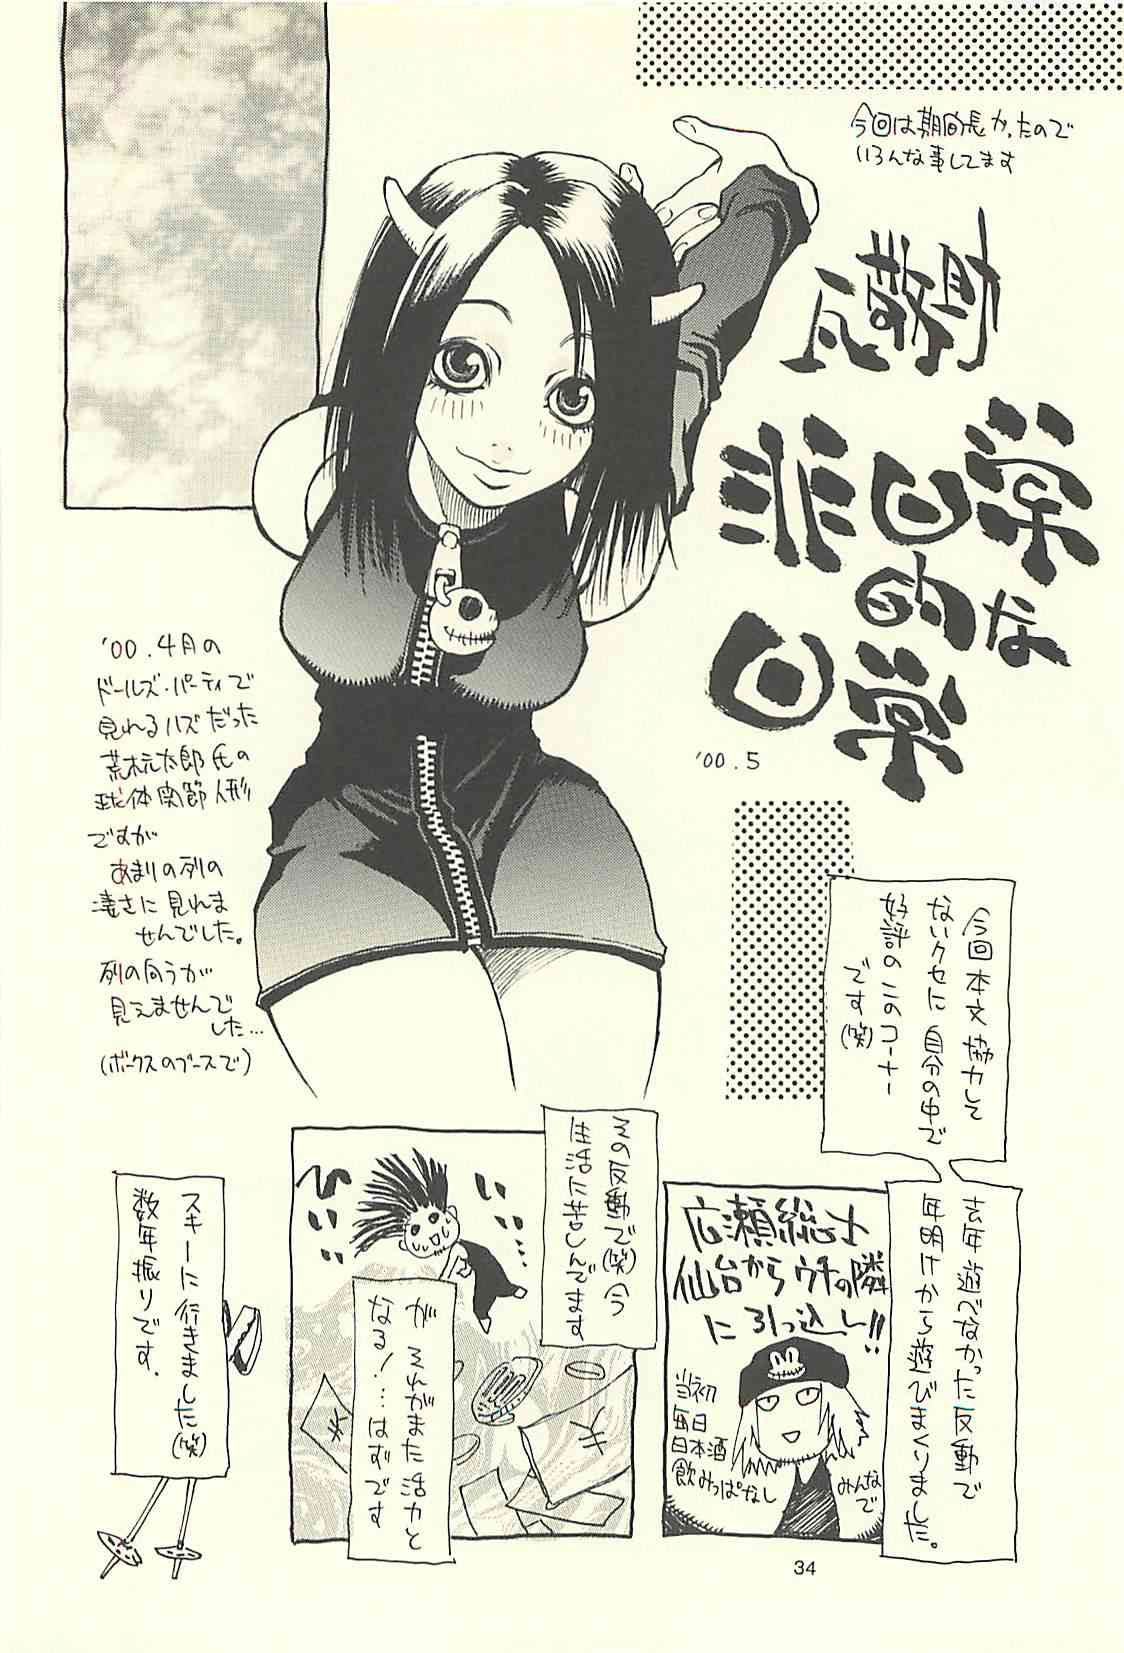 今回は期間長かったので
いろんな事してます
常日的常
な非日
'00.5
'00.4月の
ドールズ・パーティで
見れるハズだった
荒木元太郎氏の
球体関節人形
ですが
あまりの列の
凄さに見れま
せんでした。
列の向うが
見えませんで
した…
(ボークスのブースで)
今回本文協力して
ないクセに自分の中で
好評のこのコーナー
です(笑)
去年遊べなかった反動で
年明けから遊びまくりました。
広瀬総士
仙台からウチの隣
に引っ込し!!
当初
毎日
日本酒
飲みっぱなし
みんな
で
その反動で(笑)今
生活に苦しんでます
ひいい
いい…
が それがまた活力と
なる!…はずです
スキーに行きました(笑)
数年振りです.
34